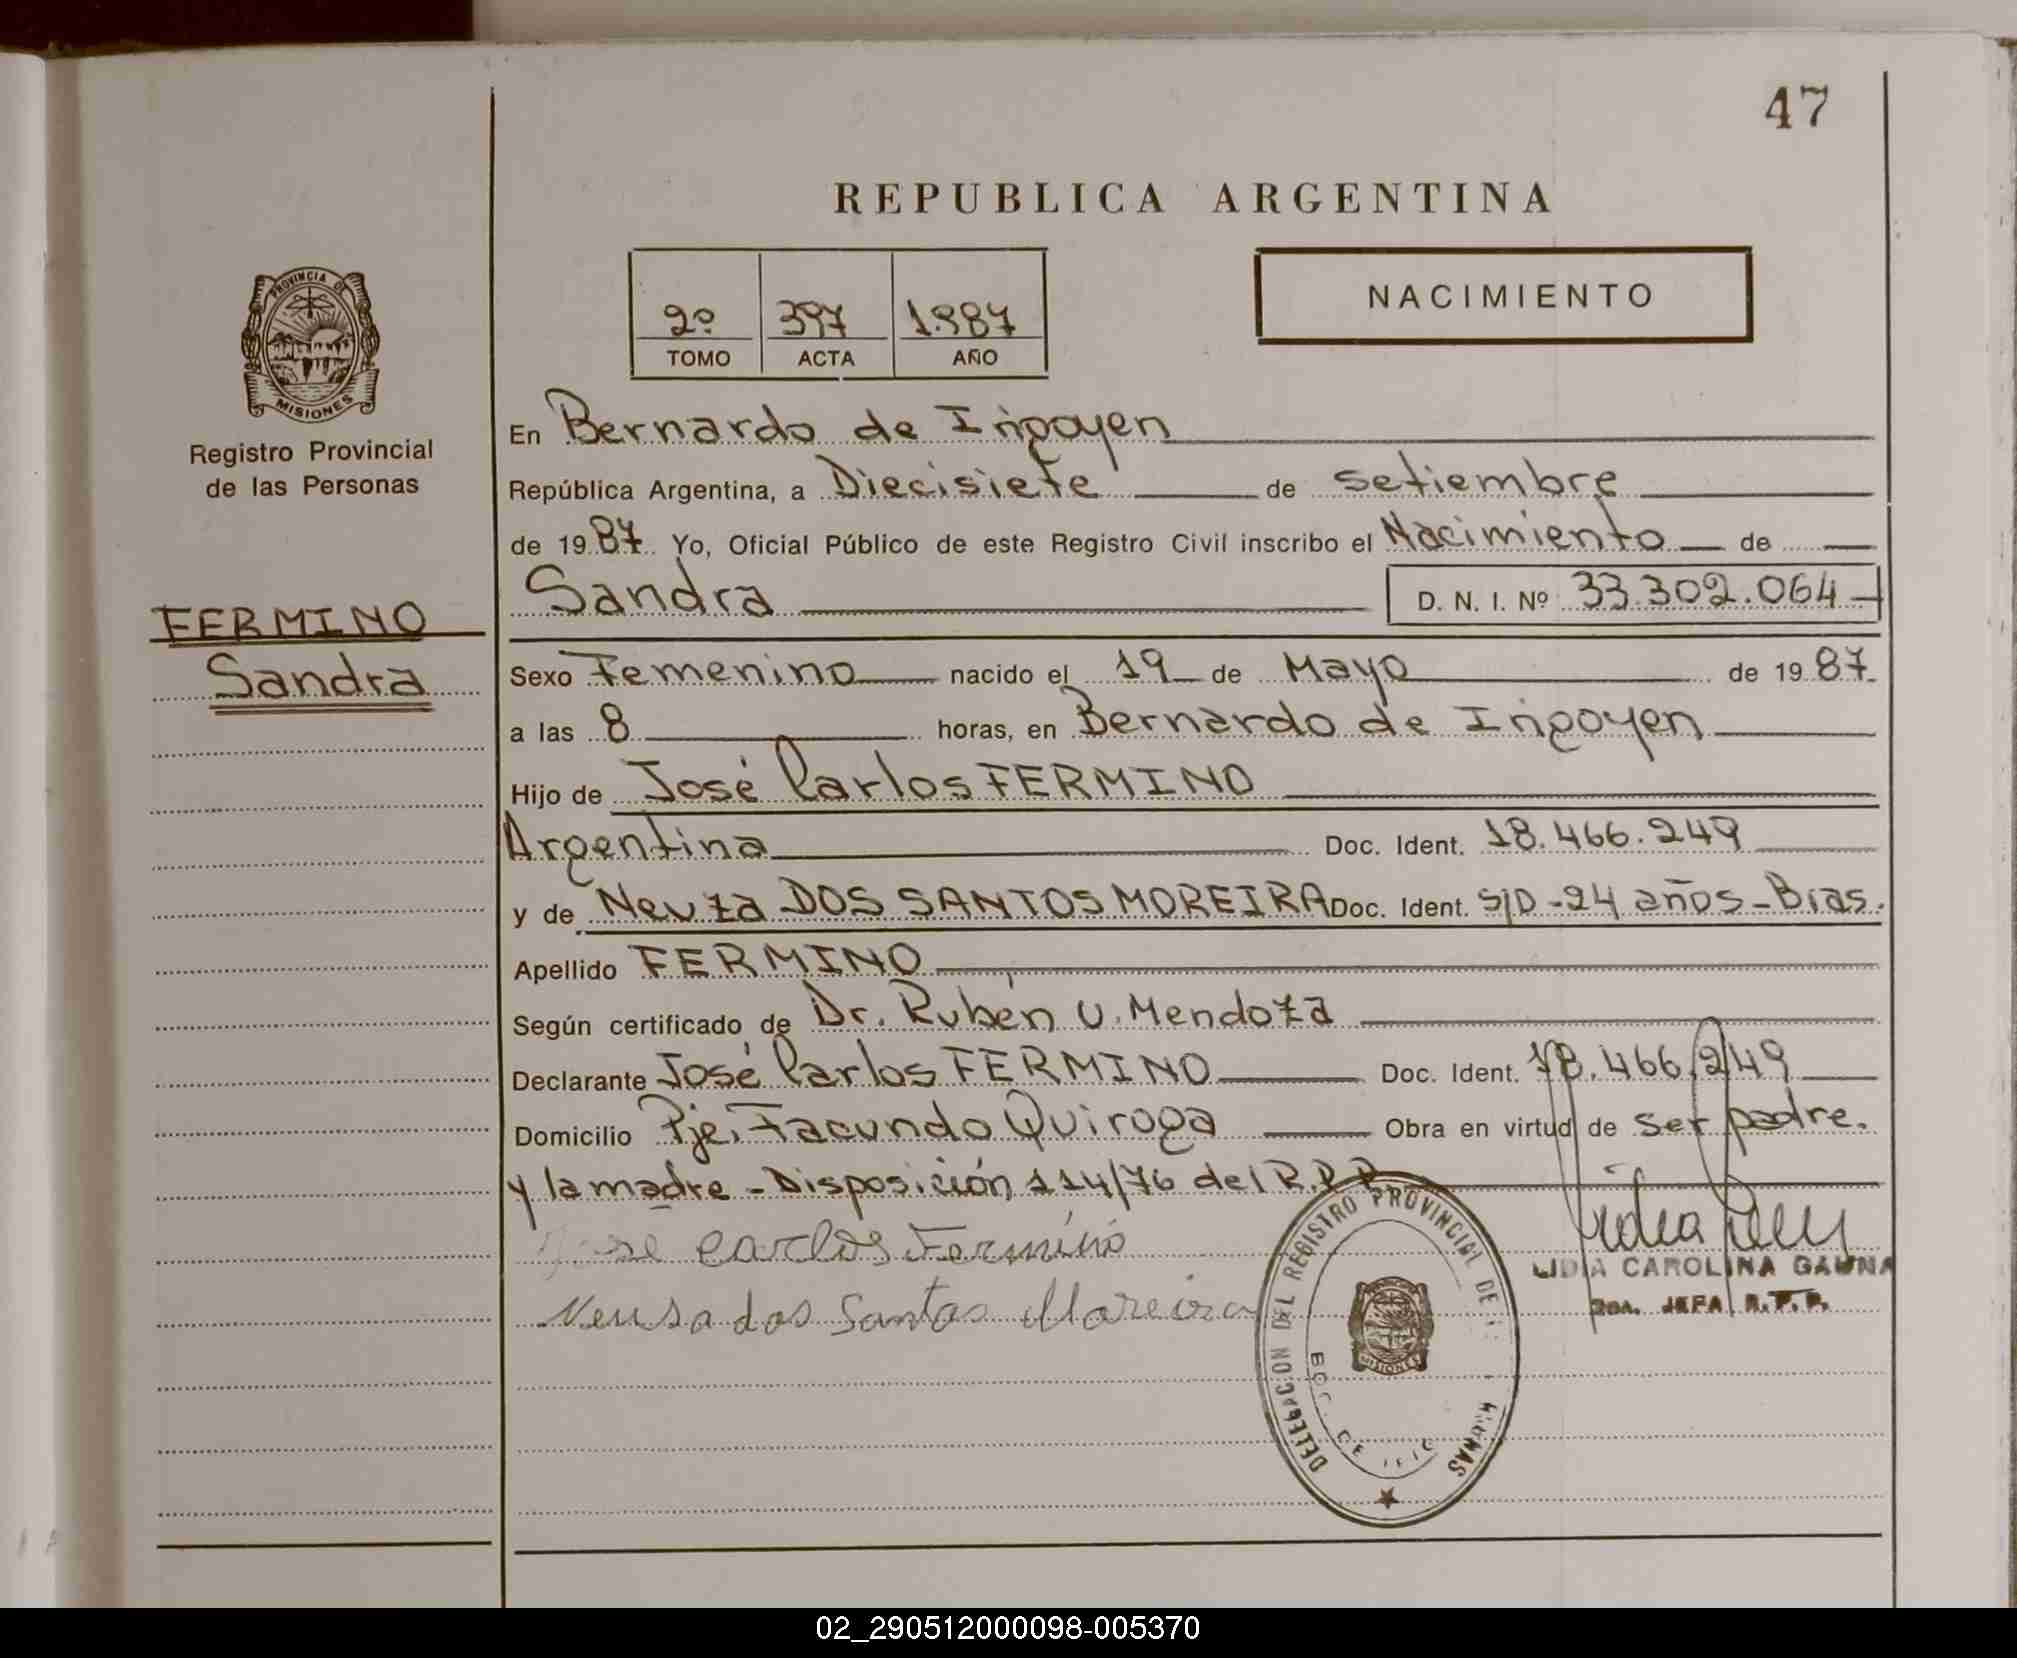 47
REPUBLICA ARGENTINA
2º 397 1.987
TOMO ACTA AÑO
NACIMIENTO
PROVINCIA DE
MISIONES
Registro Provincial
de las Personas
FERMINO
Sandra
En Bernardo de Irigoyen
República Argentina, a Diecisiete de setiembre
de 1987 Yo, Oficial Público de este Registro Civil inscribo el Nacimiento de
Sandra D. N. I. Nº 33.302.064
Sexo Femenino nacido el 19 de Mayo de 1987
a las 8 horas, en Bernardo de Irigoyen
Hijo de José Carlos FERMINO
Argentina Doc. Ident. 18.466.249
y de Neuza DOS SANTOS MOREIRA Doc. Ident. S/D - 24 años - Bras.
Apellido FERMINO
Según certificado de Dr. Rubén U. Mendoza
Declarante José Carlos FERMINO Doc. Ident. 18.466.249
Domicilio Pje. Facundo Quiroga Obra en virtud de ser padre.
y la madre - Disposición 114/76 del R.P.P.
José Carlos Fermino
Neusa dos Santos Moreira
LIDIA CAROLINA GAUNA
JEFA R.P.P.
DELEGACION DEL REGISTRO PROVINCIAL DE
MISIONES
02_290512000098-005370